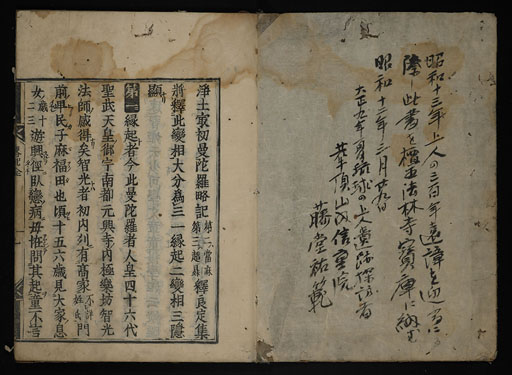 昭和十三年上人の三百年遠諱を迎ふるに
際し此書を檀王法林寺寶庫に納む
昭和十二年三月廿九日
大正九年
琉球の
上人遺跡探訪者
華頂山
信重院
藤堂祐範
浄土最初曼陀羅略記 第二當麻 第三超昇 釋良定集
將釋此變相大分爲三一縁起二變相三隱
顯
第一縁起者今此曼陀羅者人皇四十六代
聖武天皇御宇南都元興寺内極樂坊智光
法師感得矣智光者初内列有髙家 不詳姓氏 門
前興民子麻福田也頃十五六歳見大家息
女 歳十二三 遊興徑臥戀病母恠問其起童不言